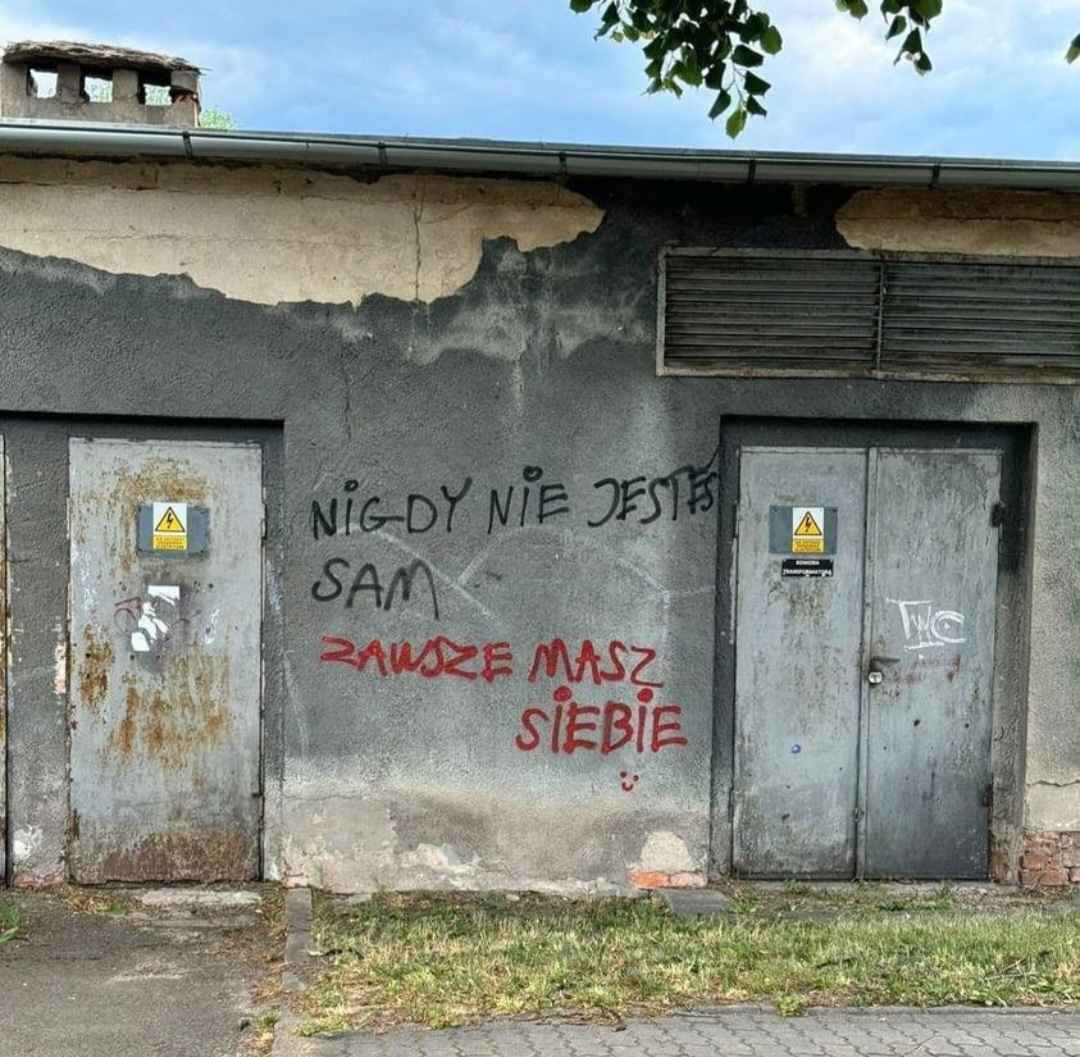 NIGDY NIE JESTEŚ
SAM
ZAWSZE MASZ
SIEBIE
KOMORA
TRANSFORMATORA
TWC